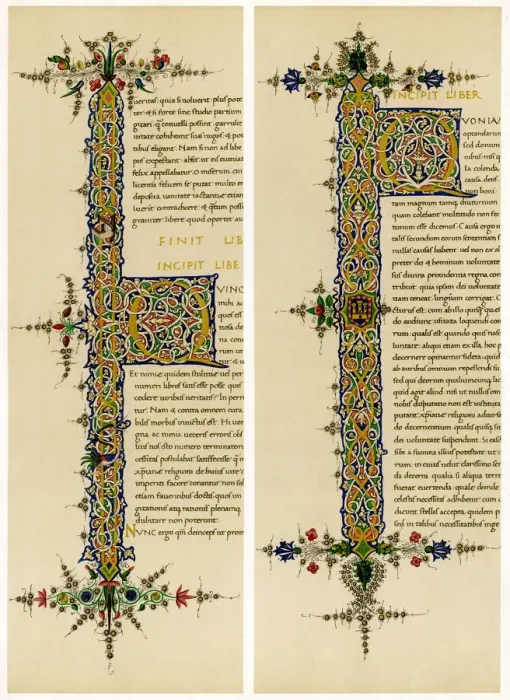 ueritas: quia si uoluerit plus pote
ter: & si forte sine studio partium
garrulit
tibus eligant. Nam si non ad libe
pes expectant: absit ut
felix appellabatur: O miserum cui
licentia felicem se putat: multo
deposita uanitate
luerit contradicere: & 
grauiter: libere: quod oportet au
FINIT LIB
INCIPIT LIBE
VINC
mihi ac
quos
tosa de
na con
rum ut
tur: & ui
Et nunc quidem stultitie uel per
numeri libros satis esse posse quis
cedere uiribus ueritatis: In perni
tur: Nam & contra omnem cura
bilis morbus inuictus est: Hi uero
gna: ac nimia ueteris erroris
uius non isto numero terminaton
cessitas postulabat satisfecisse
religioni de huius uite
imperiti facere conantur non
etiam fauentibus doctis: quos
gitationis atq rationis plenamq
dubitare non poterunt.
NVNC ergo qm deinceps ut prom
INCIPIT LIBER
VONIA
optandarum
sed donum
nibus nisi q
la colenda
causa deos
non boni
tam magnum tamq diuturnum
quam colebant multitudo non fe
tunum esse dicemus. Causa ergo m
talis secundum eorum sententiam s
nullas causas habent: uel non ex al
preter dei & hominum uoluntate
sus diuina prouidentia regna con
tribuit: quia ipsam dei uoluntate
tiam teneat: linguam corrigat: C
cturus est: cum ab illo quisq
do audiunt usitata loquendi con
rum ualis est: quando quis nasc
luntate: aliqui etiam ex illa: hoc p
decernere opinantur sidera: quid
ab auribus omnium repellendi su
sed qui deorum qualiumcunq
quid agit aliud nisi ut nullus om
nobis disputatio non est instituta
putant religioni aduersa
do decernentium qualis quisq
dei uoluntate suspendunt: Si easde
sibi a summa illius potestate
rum: in cuius uelut clarissimo
da decerni: qualia si aliqua terre
fuerat euertenda: quale deinde
celestis necessitas adhibetur: cum d
dicunt stellas accepta quidem p
sed in talibus necessitatibus inge